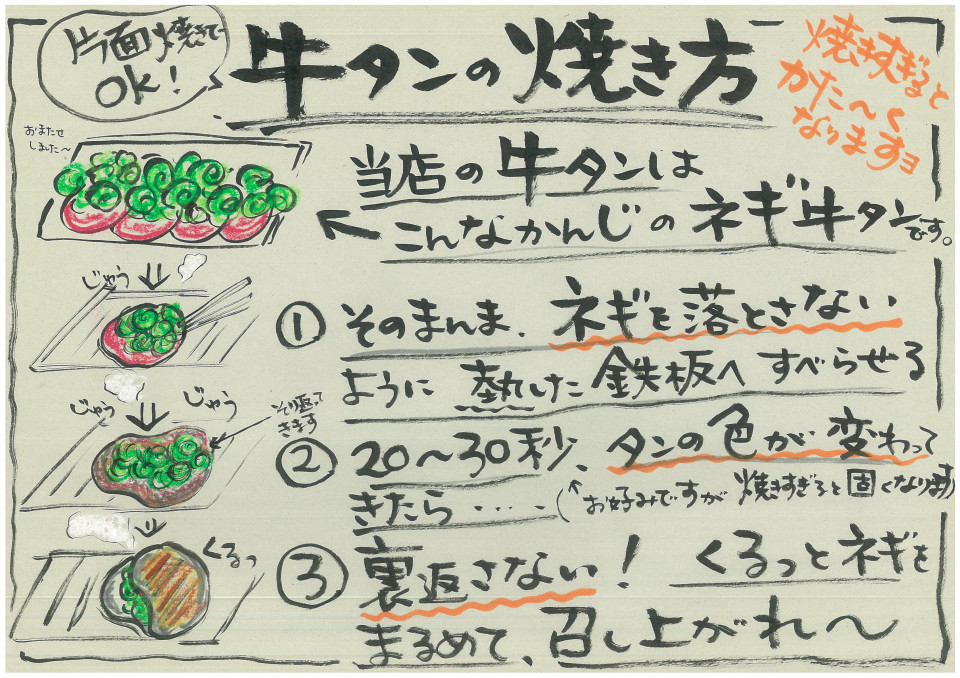 片面焼きで
OK!
牛タンの焼き方
焼きすぎると
かた〜く
なりますヨ
おまたせ
しました〜
当店の牛タンは
←こんなかんじのネギ牛タンです。
じゅう
①そのまんま、ネギを落とさない
ように熱した鉄板へすべらせる
じゅう
じゅう
そり返って
きます
②20〜30秒、タンの色が変わって
きたら‥‥‥(↑お好みですが焼きすぎると固くなります)
くるっ
③裏返さない!くるっとネギを
まるめて、召し上がれ〜